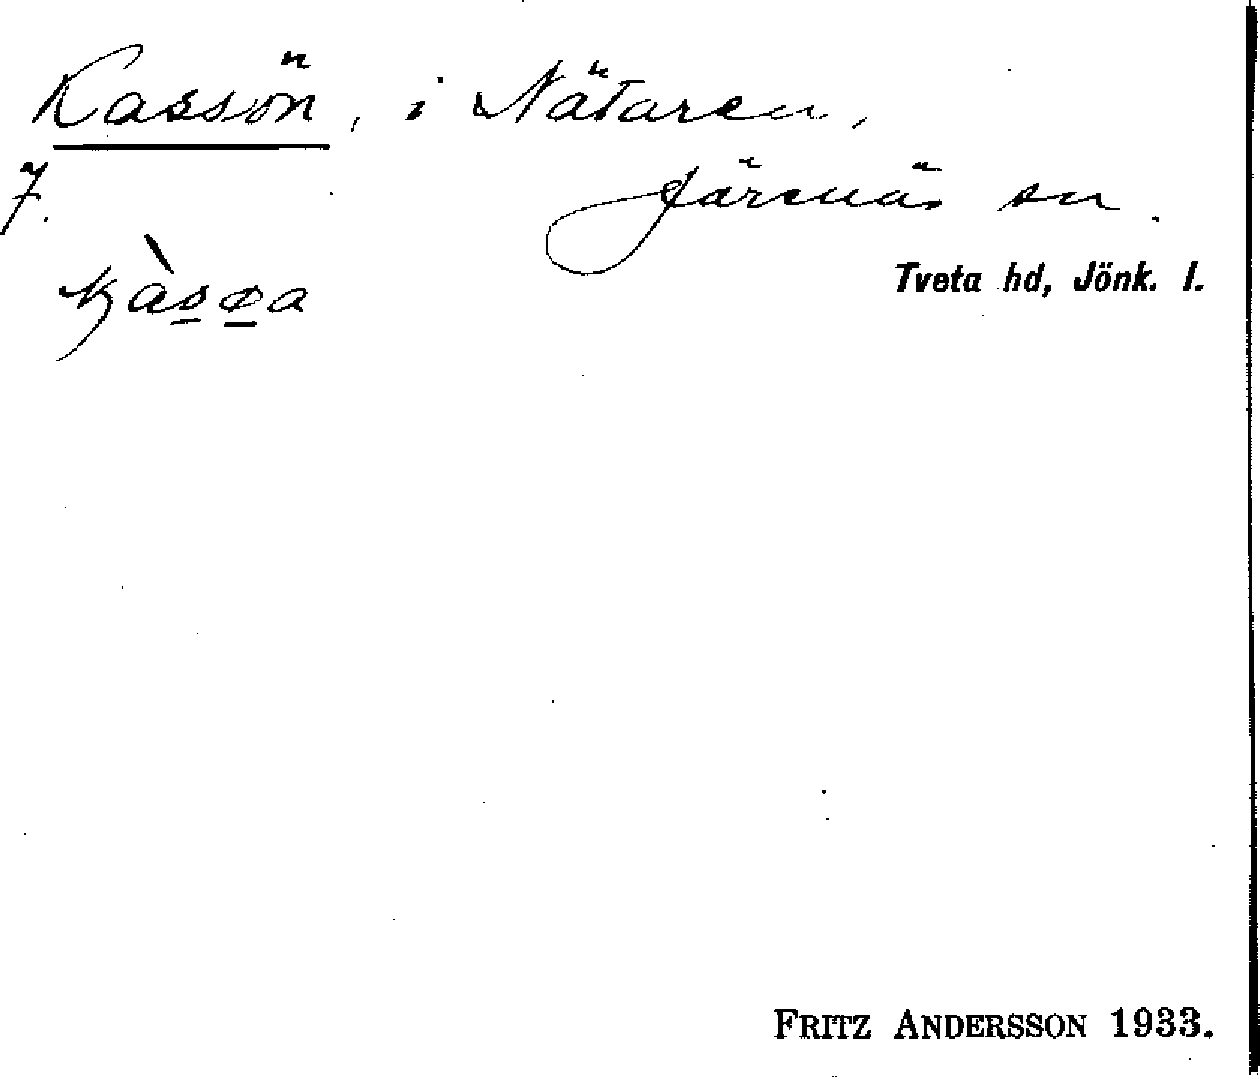 Kassön, i Nätaren,
7. Järsnäs sn.
kàsøa
Tveta hd, Jönk. l.
FRITZ ANDERSSON 1933.